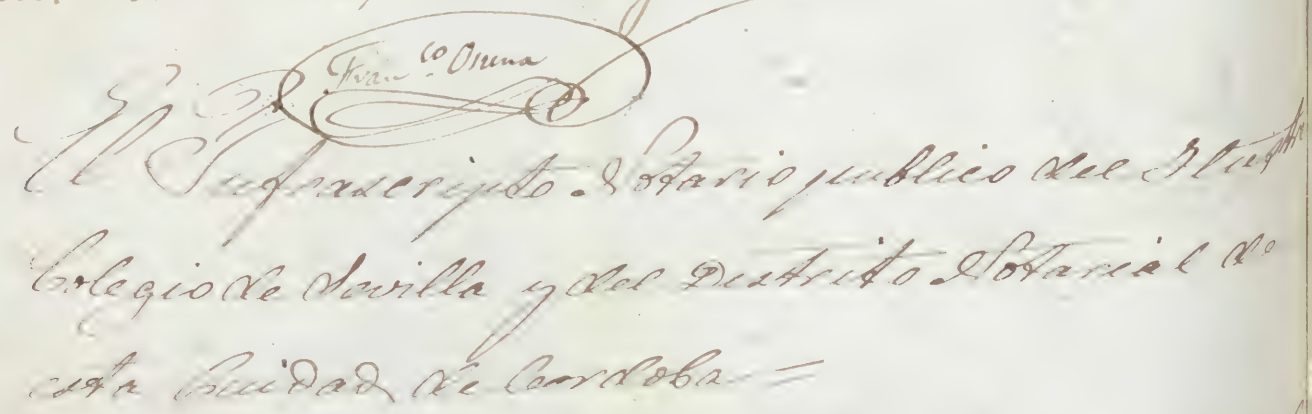 Fran.co Osuna
El Infrascripto Notario publico del Ilustre
Colegio de Sevilla y del Distrito Notarial de
esta Ciudad de Cordoba =